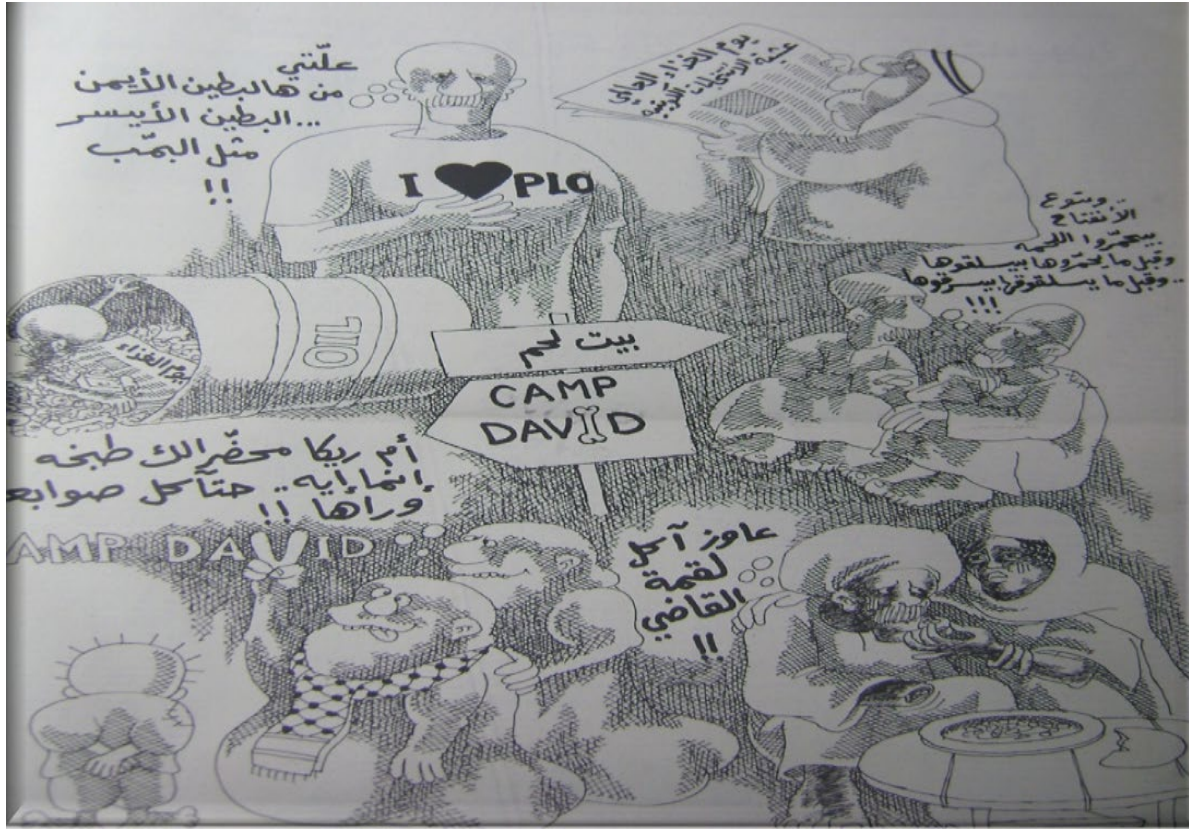 علّتي
من هالبطين الأيمن
..البطين الأيسر
مثل البمّب
!!
I ♥ PLO
يوم الغذاء العالمي
وبتوع
الانفتاح
بيحمّروا اللحمه
وقبل ما يحمّروها بيسلقوها
..وقبل ما يسلقوها بيسرقوها
!!!
يوم الغذاء
OIL
بيت لحم
CAMP
DAVID
أم ريكا محضّرالك طبخه
إنما إيه.. حتآكل صوابع
وراها !!
AMP DAVID
عاوز آكل
لقمة
القاضي
!!